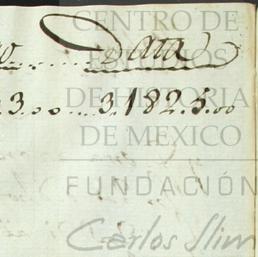 CENTRO DE
ESTUDIOS
DE HISTORIA
DE MEXICO
FUNDACIÓN
Carlos Slim
Data
3.00....3.1825.00